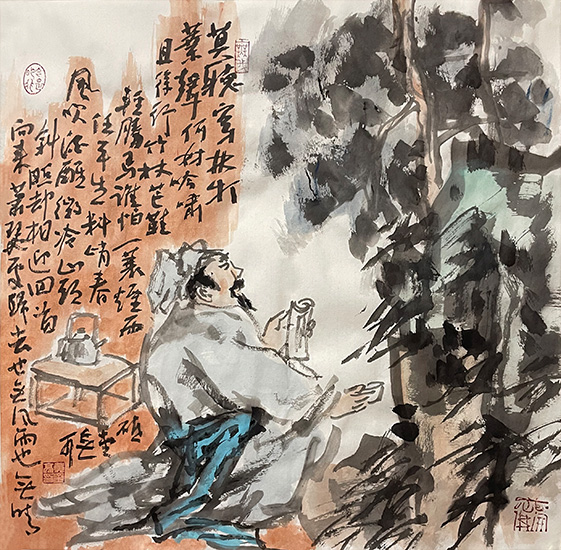 莫聽穿林打
葉聲何妨吟嘯
且徐行竹杖芒鞋
輕勝馬誰怕一蓑煙雨
任平生料峭春
風吹酒醒微冷山頭
斜照却相迎回首
向來蕭瑟處歸去也无风雨也无晴